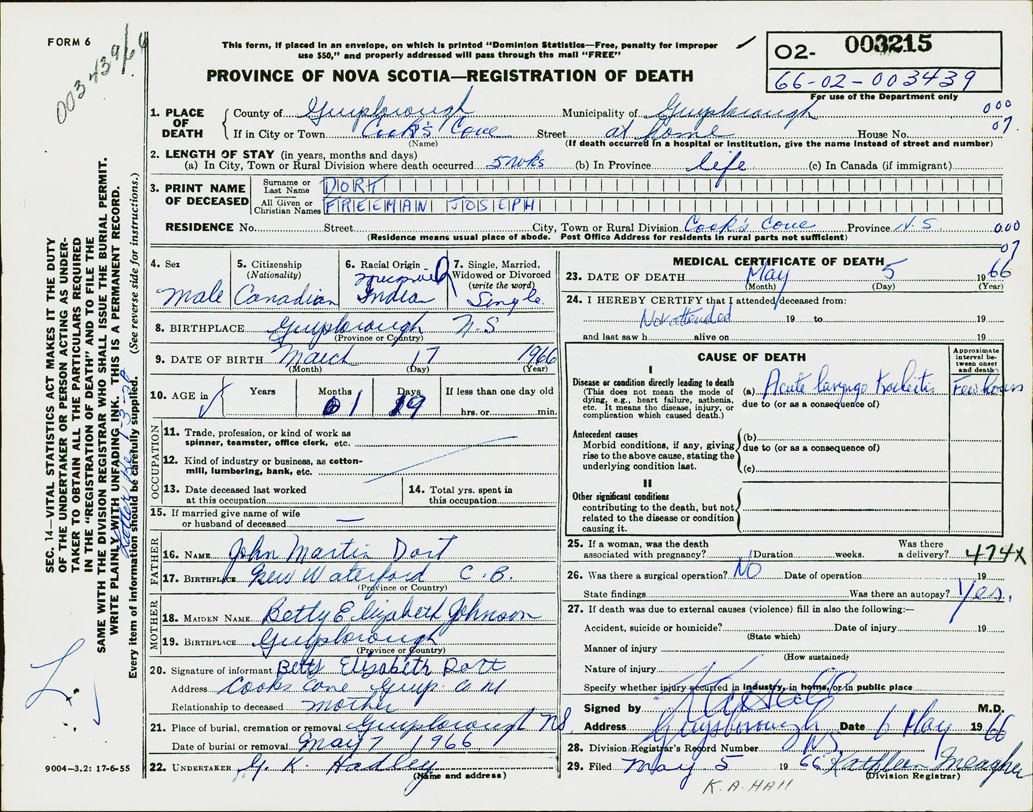 FORM 6
003439/66
This form, if placed in an envelope, on which is printed "Dominion Statistics—Free, penalty for improper
use $50," and properly addressed will pass through the mail "FREE"
PROVINCE OF NOVA SCOTIA—REGISTRATION OF DEATH
O2- 003215
66-02-003439
For use of the Department only
1. PLACE OF DEATH
County of Guysborough Municipality of Guysborough
000
07
If in City or Town Cook's Cove Street at home House No.
(Name) (If death occurred in a hospital or institution, give the name instead of street and number)
2. LENGTH OF STAY (in years, months and days)
(a) In City, Town or Rural Division where death occurred 5 wks (b) In Province life (c) In Canada (if immigrant)
3. PRINT NAME OF DECEASED
Surname or Last Name DORT
All Given or Christian Names FREEMAN JOSEPH
RESIDENCE No. Street City, Town or Rural Division Cook's Cove Province N.S.
000
07
(Residence means usual place of abode. Post Office Address for residents in rural parts not sufficient)
4. Sex
Male
5. Citizenship
(Nationality)
Canadian
6. Racial Origin
India
7. Single, Married,
Widowed or Divorced
(write the word)
Single
8. BIRTHPLACE Guysborough N.S
(Province or Country)
9. DATE OF BIRTH March 17 1966
(Month) (Day) (Year)
10. AGE in
Years
Months 1
Days 19
If less than one day old
hrs. or min.
OCCUPATION
11. Trade, profession, or kind of work as
spinner, teamster, office clerk, etc.
12. Kind of industry or business, as cotton-
mill, lumbering, bank, etc.
13. Date deceased last worked
at this occupation
14. Total yrs. spent in
this occupation
15. If married give name of wife
or husband of deceased —
FATHER
16. NAME John Martin Dort
17. BIRTHPLACE New Waterford C.B.
(Province or Country)
MOTHER
18. MAIDEN NAME Betty Elizabeth Johnson
19. BIRTHPLACE Guysborough
(Province or Country)
20. Signature of informant Betty Elizabeth Dort
Address Cooks Cove Guys Co NS
Relationship to deceased mother
21. Place of burial, cremation or removal Guysborough NS
Date of burial or removal May 7 1966
22. UNDERTAKER G. K. Hadley
(Name and address)
MEDICAL CERTIFICATE OF DEATH
23. DATE OF DEATH May 5 1966
(Month) (Day) (Year)
24. I HEREBY CERTIFY that I attended deceased from:
Not attended 19 to 19
and last saw h alive on 19
CAUSE OF DEATH
Approximate interval between onset and death
I
Disease or condition directly leading to death
(This does not mean the mode of dying, e.g., heart failure, asthenia, etc. It means the disease, injury, or complication which caused death.)
(a) Acute laryngo tracheitis Few hours
due to (or as a consequence of)
Antecedent causes
Morbid conditions, if any, giving
rise to the above cause, stating the
underlying condition last.
(b)
due to (or as a consequence of)
(c)
II
Other significant conditions
contributing to the death, but not
related to the disease or condition
causing it.
25. If a woman, was the death
associated with pregnancy? Duration weeks. Was there
a delivery? 474X
26. Was there a surgical operation? NO Date of operation 19
State findings Was there an autopsy? Yes.
27. If death was due to external causes (violence) fill in also the following:—
Accident, suicide or homicide? Date of injury 19
(State which)
Manner of injury
(How sustained)
Nature of injury
Specify whether injury occurred in industry, in home, or in public place
Signed by M.D.
Address Guysborough N.S. Date 6 May 1966
28. Division Registrar's Record Number
29. Filed May 5 1966 Kathleen Meagher
(Division Registrar)
K.A. Hall
SEC. 14—VITAL STATISTICS ACT MAKES IT THE DUTY
OF THE UNDERTAKER OR PERSON ACTING AS UNDER-
TAKER TO OBTAIN ALL THE PARTICULARS REQUIRED
IN THE "REGISTRATION OF DEATH" AND TO FILE THE
SAME WITH THE DIVISION REGISTRAR WHO SHALL ISSUE THE BURIAL PERMIT.
WRITE PLAINLY WITH UNFADING INK. THIS IS A PERMANENT RECORD.
Every item of information should be carefully supplied. (See reverse side for instructions.)
9004-3.2: 17-6-55